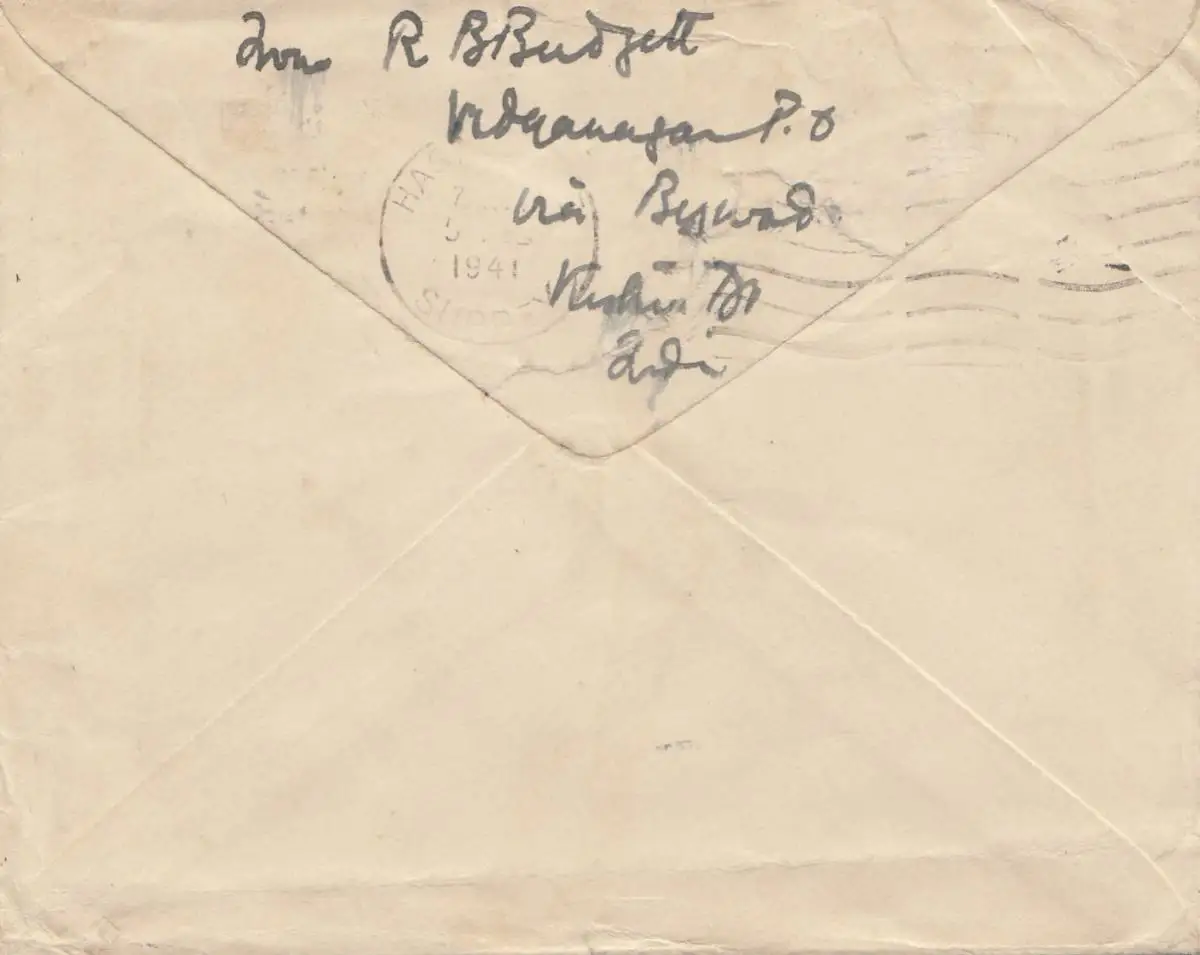 From R B Budgett
Vidyanagar P.O
via Bezwad
Kistna Dt
India
HA
1941